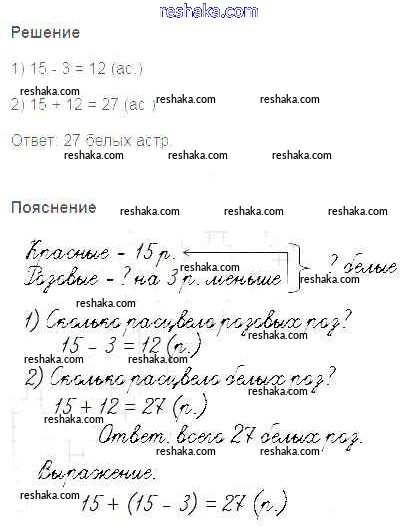 reshaka.com
Решение
1) 15 - 3 = 12 (ас.)
reshaka.com
2) 15 + 12 = 27 (ас.)
reshaka.com reshaka.com
Ответ: 27 белых астр.
reshaka.com reshaka.com
Пояснение
reshaka.com reshaka.com
Красные - 15 р.
reshaka.com
? белые
Розовые - ? на 3 р. меньше
reshaka.com
reshaka.com
1) Сколько расцвело розовых роз?
reshaka.com
15 - 3 = 12 (р.)
reshaka.com reshaka.com reshaka.com
2) Сколько расцвело белых роз?
reshaka.com
15 + 12 = 27 (р.)
reshaka.com
Ответ: всего 27 белых роз.
reshaka.com
Выражение:
reshaka.com
reshaka.com
15 + (15 - 3) = 27 (р.)